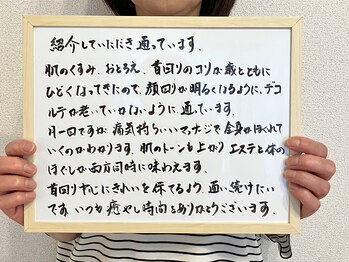 紹介していただき通っています。
肌のくすみ、おとろえ、首回りのコリが歳とともに
ひどくなってきたので、顔回りが明るくなるように、デコ
ルテが老いていかないように通っています。
月一回ですが、病気持ちいいマッサジで全身がほぐれて
いくのがわかります。肌のトーンも上がりエステと体の
ほぐしが両方同時に味わえます。
首回り中心にきれいを保てるよう、通い続けたい
です。いつも癒やし時間をありがとうございます。